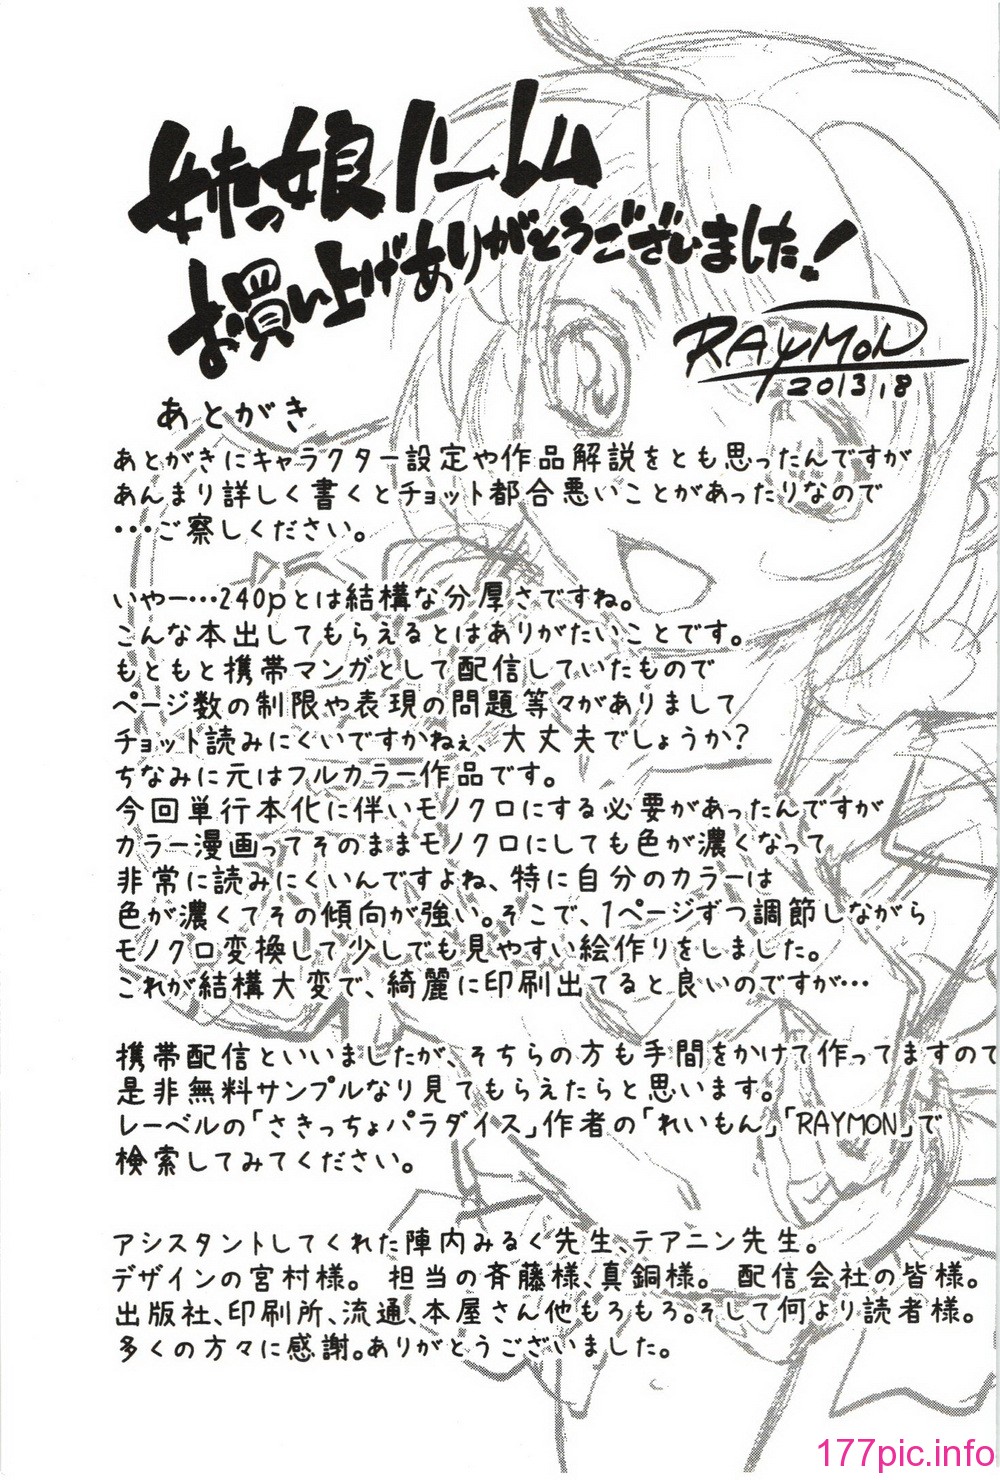 姉っ娘ハーレム
お買い上げありがとうございました!
RAYMON
2013,8
あとがき
あとがきにキャラクター設定や作品解説をとも思ったんですが
あんまり詳しく書くとチョット都合悪いことがあったりなので
・・・ご察しください。
いやー・・・240pとは結構な分厚さですね。
こんな本出してもらえるとはありがたいことです。
もともと携帯マンガとして配信していたもので
ページ数の制限や表現の問題等々がありまして
チョット読みにくいですかねぇ、大丈夫でしょうか?
ちなみに元はフルカラー作品です。
今回単行本化に伴いモノクロにする必要があったんですが
カラー漫画ってそのままモノクロにしても色が濃くなって
非常に読みにくいんですよね、特に自分のカラーは
色が濃くてその傾向が強い。そこで、1ページずつ調節しながら
モノクロ変換して少しでも見やすい絵作りをしました。
これが結構大変で、綺麗に印刷出てると良いのですが・・・
携帯配信といいましたが、そちらの方も手間をかけて作ってますので
是非無料サンプルなり見てもらえたらと思います。
レーベルの「さきっちょパラダイス」作者の「れいもん」「RAYMON」で
検索してみてください。
アシスタントしてくれた陣内みるく先生、テアニン先生。
デザインの宮村様。 担当の斉藤様、真銅様。 配信会社の皆様。
出版社、印刷所、流通、本屋さん他もろもろ。そして何より読者様。
多くの方々に感謝。ありがとうございました。
177pic.info